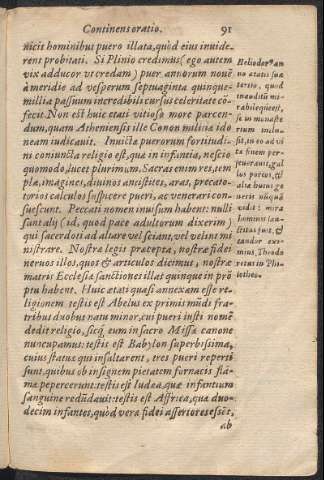 Continens oratio. 91
nicis hominibus puero illata, quòd eius inuide-
rent probitati. Si Plinio credimus (ego autem
vix adducor vt credam) puer annorum nouē
à meridie ad vesperum septuaginta quinque
millia passuum incredibili cursus celeritate cō-
fecit. Non est huic etati vitioso more parcen-
dum, quam Atheniensis ille Conon militia ido
neam iudicauit. Inuicta puerorum fortitudi-
ni coniuncta religio est, quæ in infantia, nescio
quomodo, lucet plurimum. Sacras enim res, tem
pla, imagines, diuinos antistites, aras, precato-
rios calculos suspicere pueri, ac venerari con-
suescunt. Peccati nomen inuisum habent: nulli
sunt alij (id, quod pace adultorum dixerim)
qui sacerdoti ad altare vel sciant, vel velint mi
nistrare. Nostræ legis præcepta, nostræ fidei
neruos illos, quos & articulos dicimus, nostræ
matris Ecclesiæ sanctiones illæ quinque in prō
ptu habent. Huic ætati quasi annexam esse re-
ligionem testis est Abelus ex primis mūdi fra-
tribus duobus natu minor, cui pueri iusti nomē
dedit religio, sicq́ eum in sacro Missæ canone
nuncupamus: testis est Babylon superbissima,
cuius statuæ qui insultarent, tres pueri reperti
sunt, quibus ob insignem pietatem fornacis flā-
ma pepercerunt: testis est Iudea, quæ infantium
sanguine redūdauit: testis est Affrica, quæ duo-
decim infantes, quòd vera fidei assertores essēt,
ab
Heliodorꝰ an
no ætatis suæ
tertio, quod
inauditū mi-
rabileq́ue est,
se in monaste
rium inclu-
sit, in eo ad vi
tæ finem per-
seuerauit, gal
los porcos, &
alia huius ge
neris nũquã
vidit: mira
hominis san-
ctitas fuit, &
tandor exi-
mius, Theodo
ritus in Phi-
lotheo.